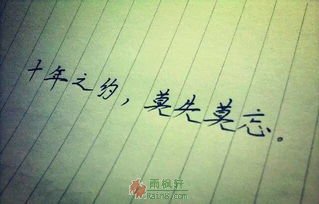 十年之约，莫失莫忘。
雨枫轩